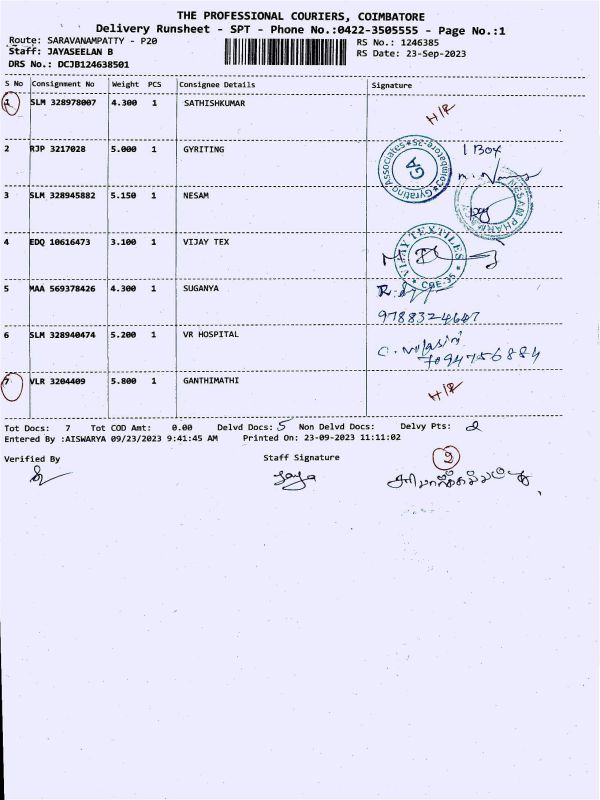 THE PROFESSIONAL COURIERS, COIMBATORE
Delivery Runsheet - SPT - Phone No.:0422-3505555 - Page No.:1
Route: SARAVANAMPATTY - P20
RS No.: 1246385
Staff: JAYASEELAN B
RS Date: 23-Sep-2023
DRS No.: DCJB124638501
S No Consignment No Weight PCS Consignee Details Signature
1 SLM 328978007 4.300 1 SATHISHKUMAR H/R
2 RJP 3217028 5.000 1 GYRITING 1 Box
Gyrating Associates * Coimbatore-35 *
GA
3 SLM 328945882 5.150 1 NESAM
NESAM PHARMA
4 EDQ 10616473 3.100 1 VIJAY TEX
VIJAY TEXTILES
* CBE-35 *
5 MAA 569378426 4.300 1 SUGANYA
9788324647
6 SLM 328940474 5.200 1 VR HOSPITAL
7094756884
7 VLR 3204409 5.800 1 GANTHIMATHI H/R
Tot Docs: 7 Tot COD Amt: 0.00 Delvd Docs: 5 Non Delvd Docs: Delvy Pts: 2
Entered By :AISWARYA 09/23/2023 9:41:45 AM Printed On: 23-09-2023 11:11:02
Verified By Staff Signature
Jaya